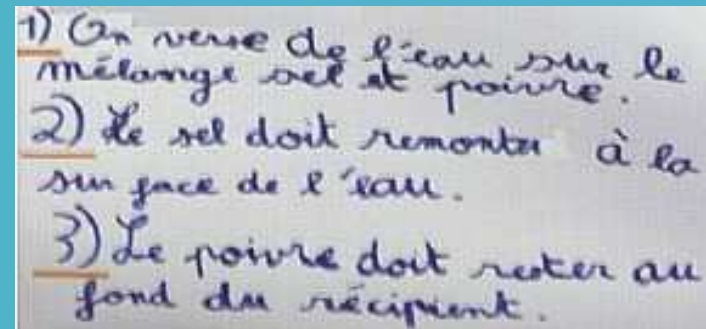 1) On verse de l'eau sur le
mélange sel et poivre.
2) Le sel doit remonter à la
surface de l'eau.
3) Le poivre doit rester au
fond du récipient.